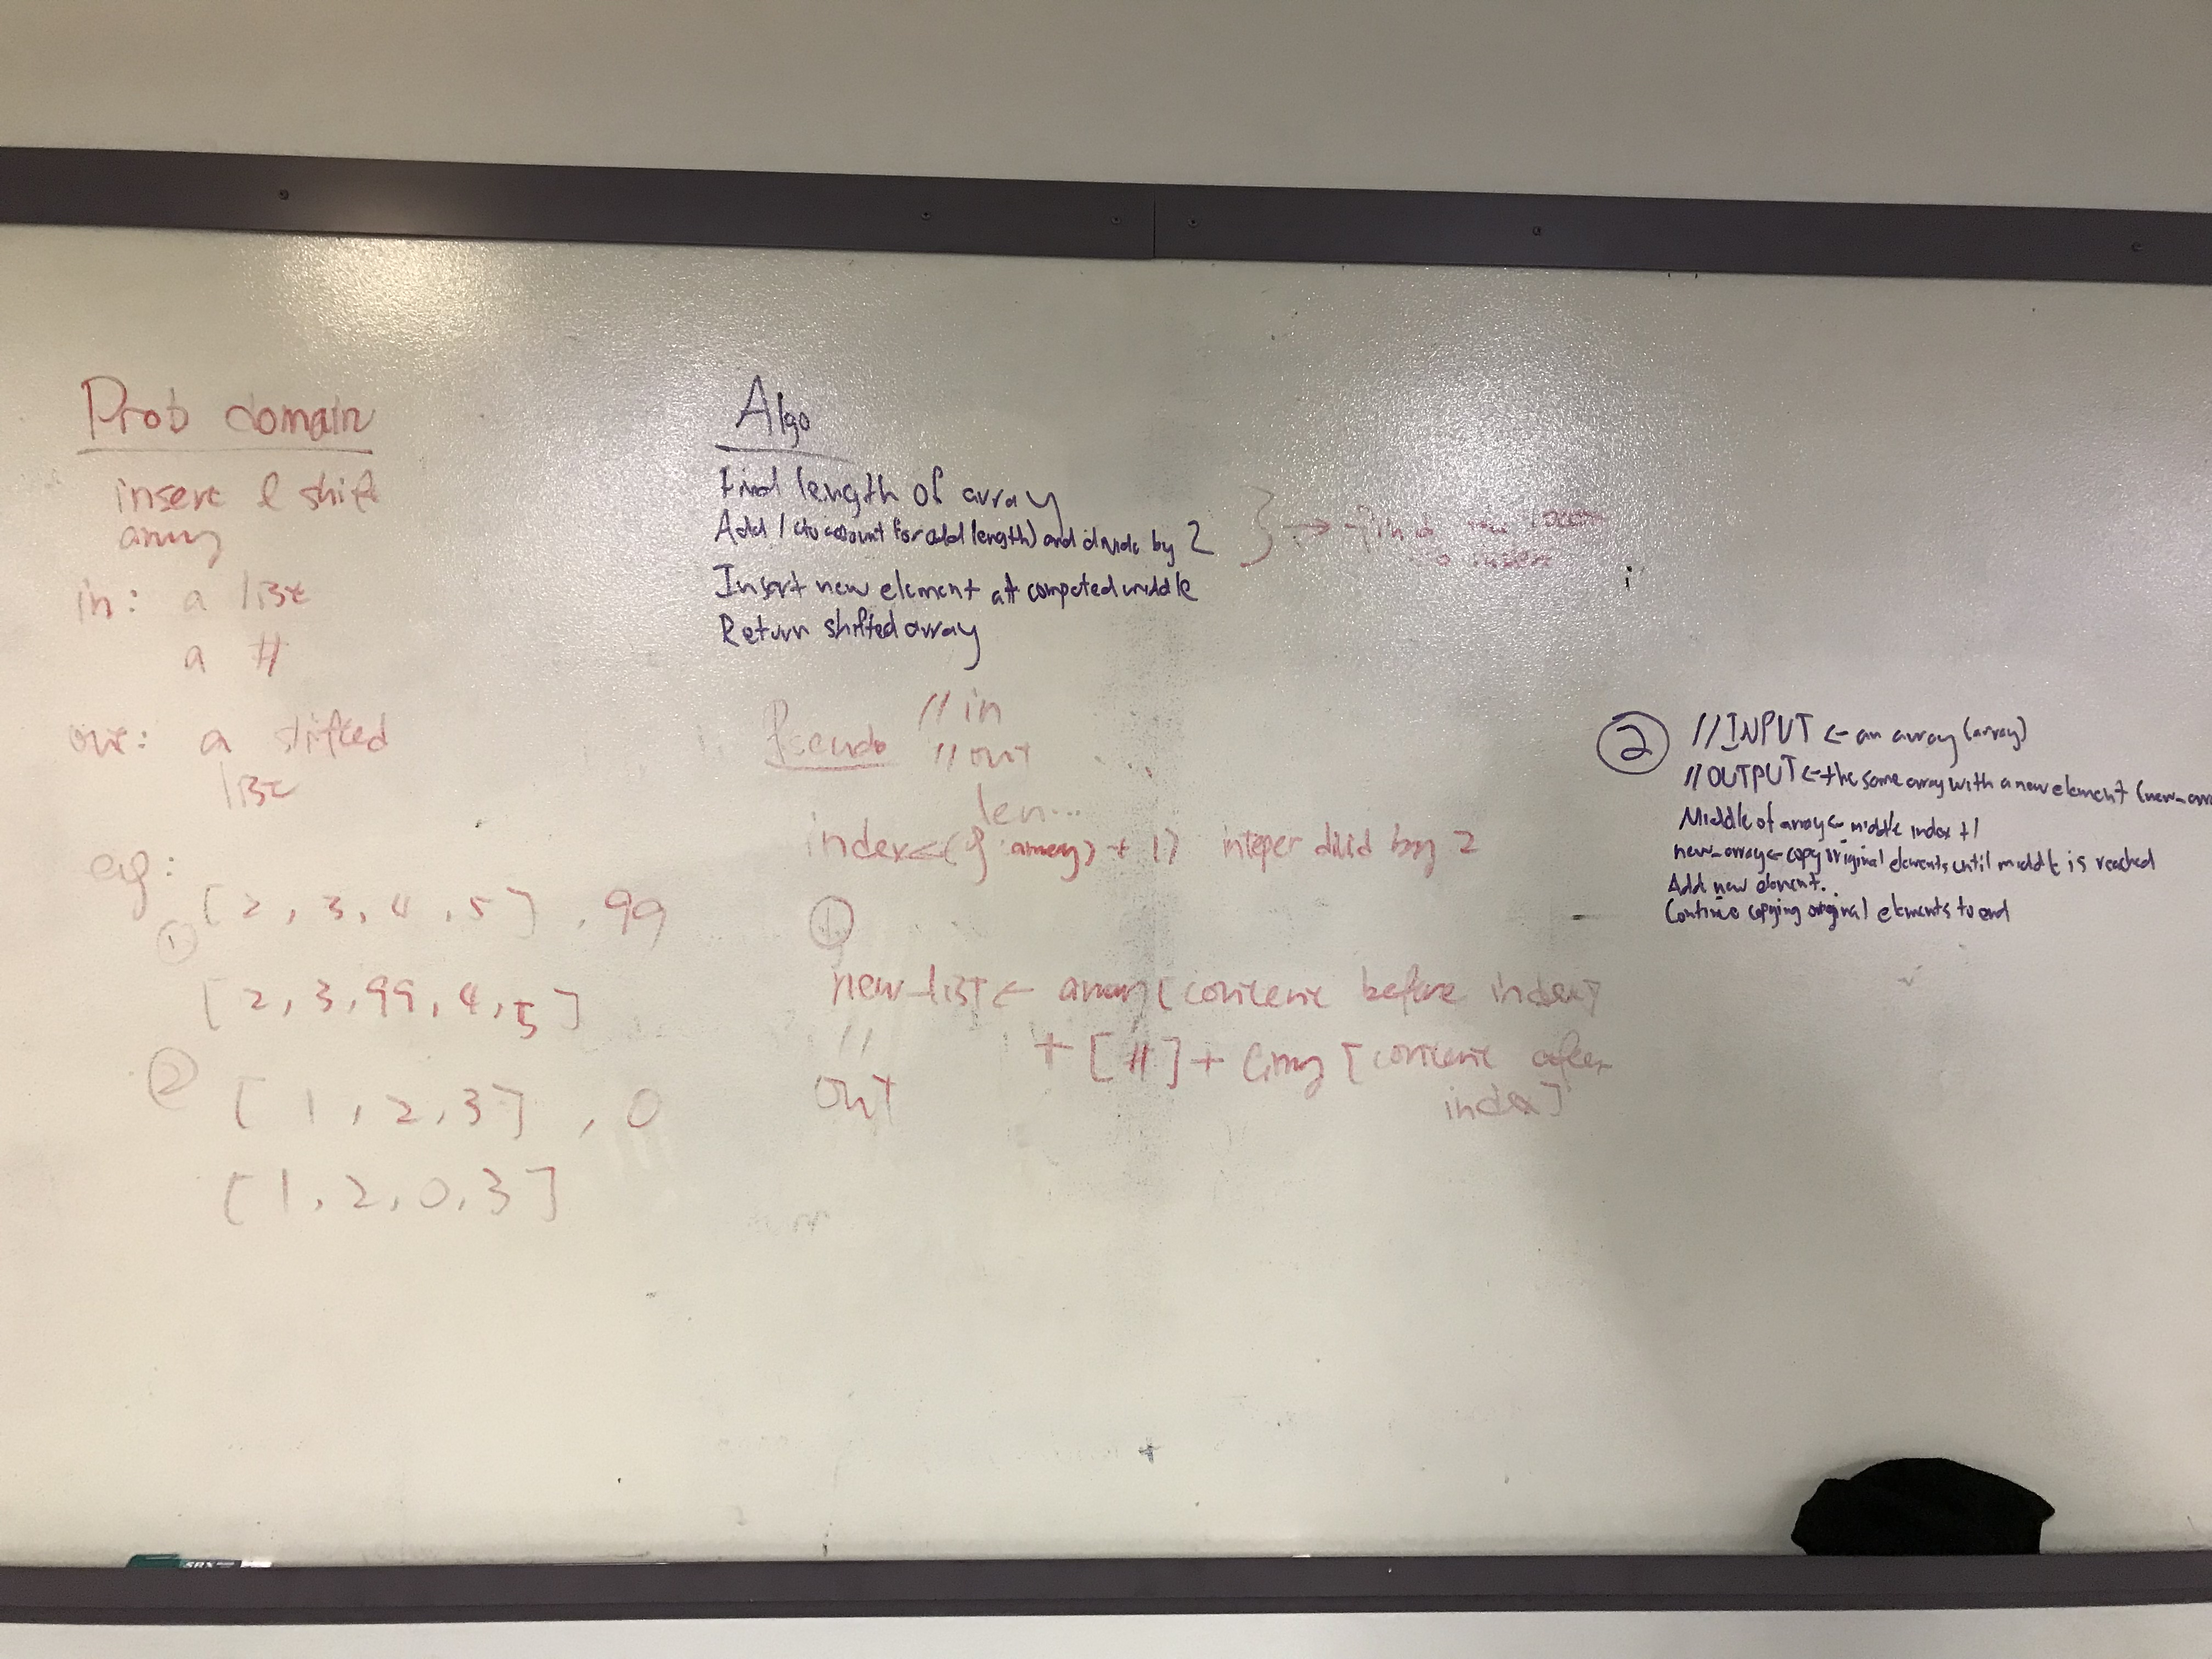 Prob domain
insert & shift
array
in: a list
a #
out: a shifted
list
eg:
① [2, 3, 4, 5] , 99
[2, 3, 99, 4, 5]
② [1, 2, 3] , 0
[1, 2, 0, 3]
Algo
Find length of array
Add 1 (to account for odd length) and divide by 2
Insert new element at computed middle
Return shifted array
} → find
to insert
Pseudo // in
// out
len...
index <- ( of array) + 1) integer divid by 2
①
new_list <- array [content before index]
+ [#] + array [content after
index]
//
out
② // INPUT <- an array (array)
// OUTPUT <- the same array with a new element (new_arr
Middle of array <- middle index +1
new_array <- copy original elements until middle is reached
Add new element.
Continue copying original elements to end